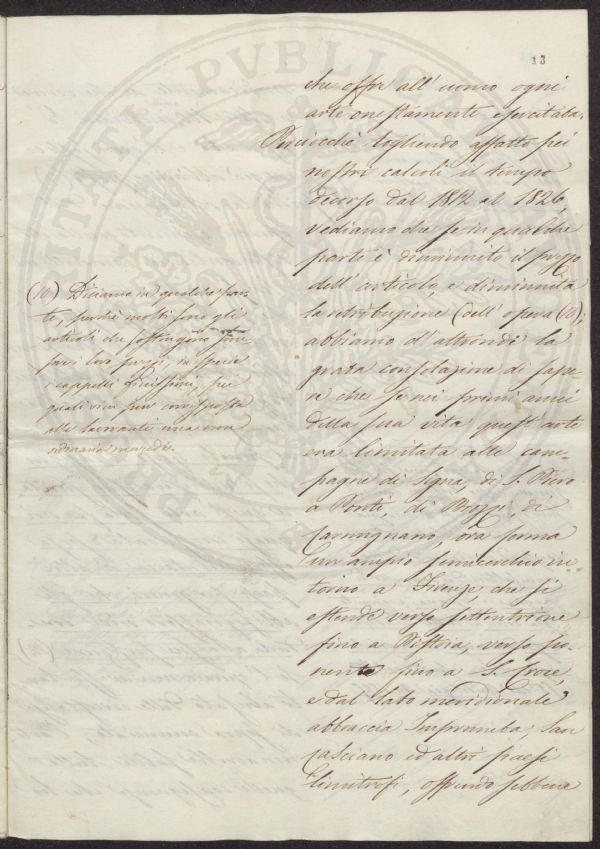 13
che offre all' uomo ogni
arte onestamente esercitata.
Poiciocchè togliendo affatto pei
nostri calcoli il tempo
decorso dal 1812 al 1826,
vediamo che se in qualche
parte è diminuito il prezzo
dell' articolo, e diminuita
la retribuzione dell' opera (10);
abbiamo d' altronde la
grata consolazione di sape-
re che se nei primi anni
della sua vita quest' arte
era limitata alle cam-
pagne di Signa, di S. Piero
a Ponti, di Brozzi, di
Carmignano, ora forma
un ampio semicerchio in-
torno a Firenze, che si
estende verso settentrione
fino a Pistoia, verso po-
nente fino a S. Croce,
e dal lato meridionale
abbraccia Impruneta, San
Casciano ed altri paesi
limitrofi, offrendo sebbene
(10) Diciamo in qualche par-
te, perchè molti sono gli
articoli che sostengono
i loro prezzi, in specie
i cappelli finissimi, pei
quali vien pur corrisposta
alla lavorante una stra
ordinaria mercede.
PVBLICAE